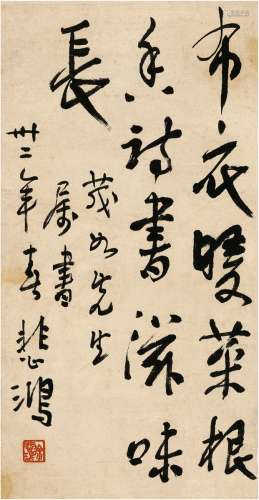 布衣暖菜根
香詩書滋味
長
茂如先生
属書
卅二年春悲鴻